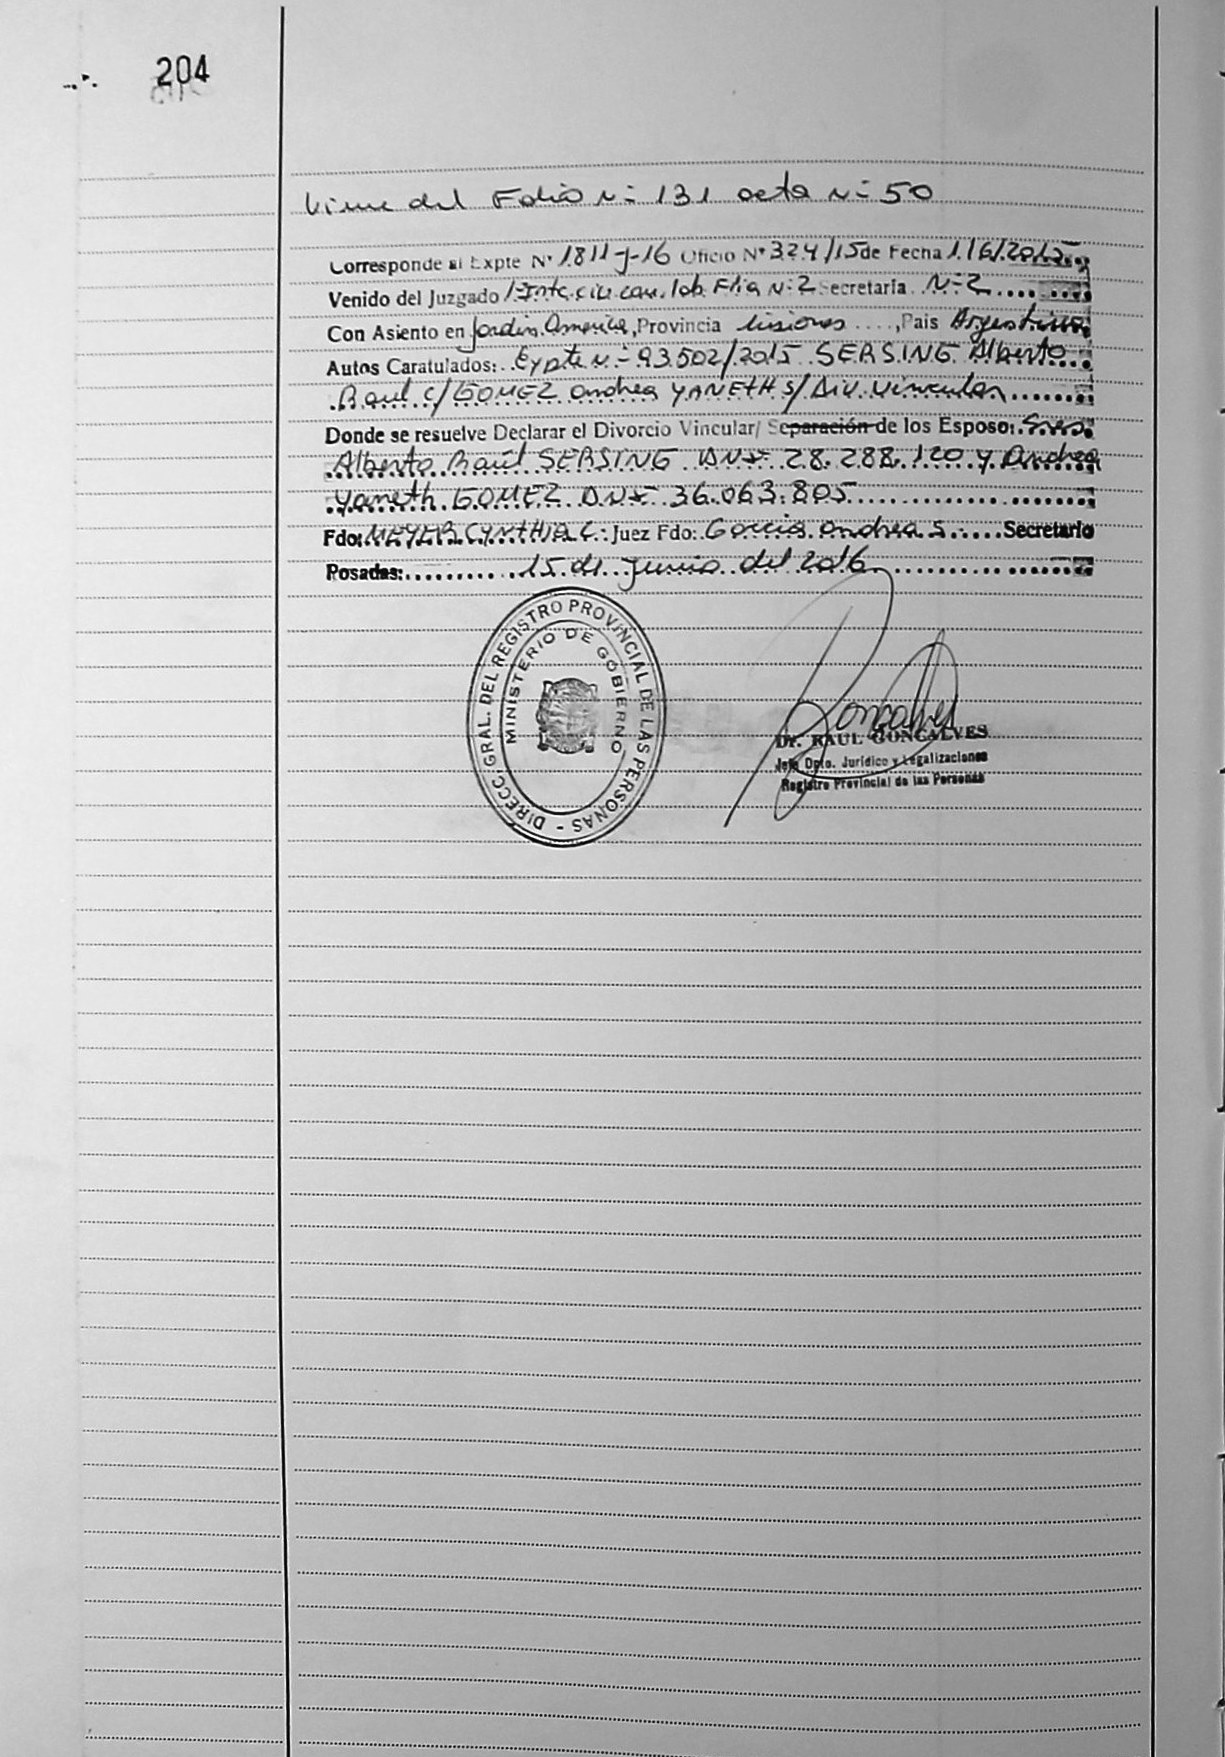 204
Viene del Folio N= 131 acta N= 50
Corresponde al Expte N° 1811-J-16 Oficio N° 324/15 de Fecha 1/6/2015
Venido del Juzgado 1ª Inta. civ. com. lab. Flia N=2 Secretaría N=2
Con Asiento en Jardin America, Provincia Misiones ...., País Argentina
Autos Caratulados: Expte N=93502/2015 SERSING Alberto
Raul c/ GOMEZ Andrea YANETH s/ Div. Vincular
Donde se resuelve Declarar el Divorcio Vincular/ Separación de los Esposo: Sres.
Alberto Raúl SERSING DNI 28.288.120 y Andrea
Yaneth GOMEZ DNI 36.063.805
Fdo: MEYER CYNTHIA C. Juez Fdo: Garcia Andrea S. Secretario
Posadas: 15 de Junio del 2016
DIRECC. GRAL. DEL REGISTRO PROVINCIAL DE LAS PERSONAS -
MINISTERIO DE GOBIERNO
Goncalves
Dr. RAUL GONCALVES
Jefe Dpto. Jurídico y Legalizaciones
Registro Provincial de las Personas